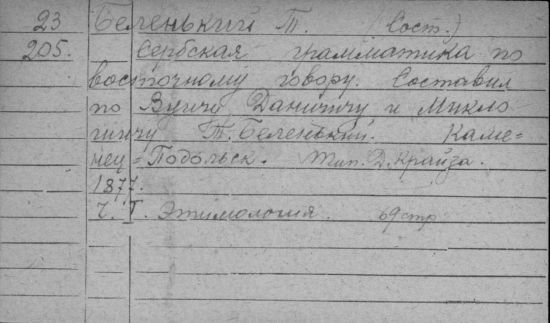 23 Беленький Т. (Сост.)
205. Сербская грамматика по
восточному говору. Составил
по Вуичу Даничичу и Микло-
шичу Т. Беленький. Каме=
нец=Подольск. Тип. Д. Крайза.
1877.
Ч. I. Этимология. 69 стр